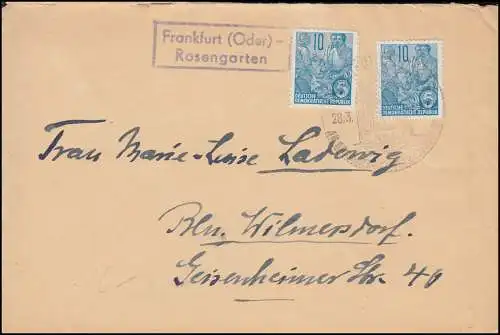 Frankfurt (Oder) -
Rosengarten
10
DEUTSCHE
DEMOKRATISCHE REPUBLIK
5
10
DEUTSCHE
DEMOKRATISCHE REPUBLIK
5
28.3.
Frau Marie-Luise Ladewig
Bln. Wilmersdorf.
Geisenheimer Str. 40